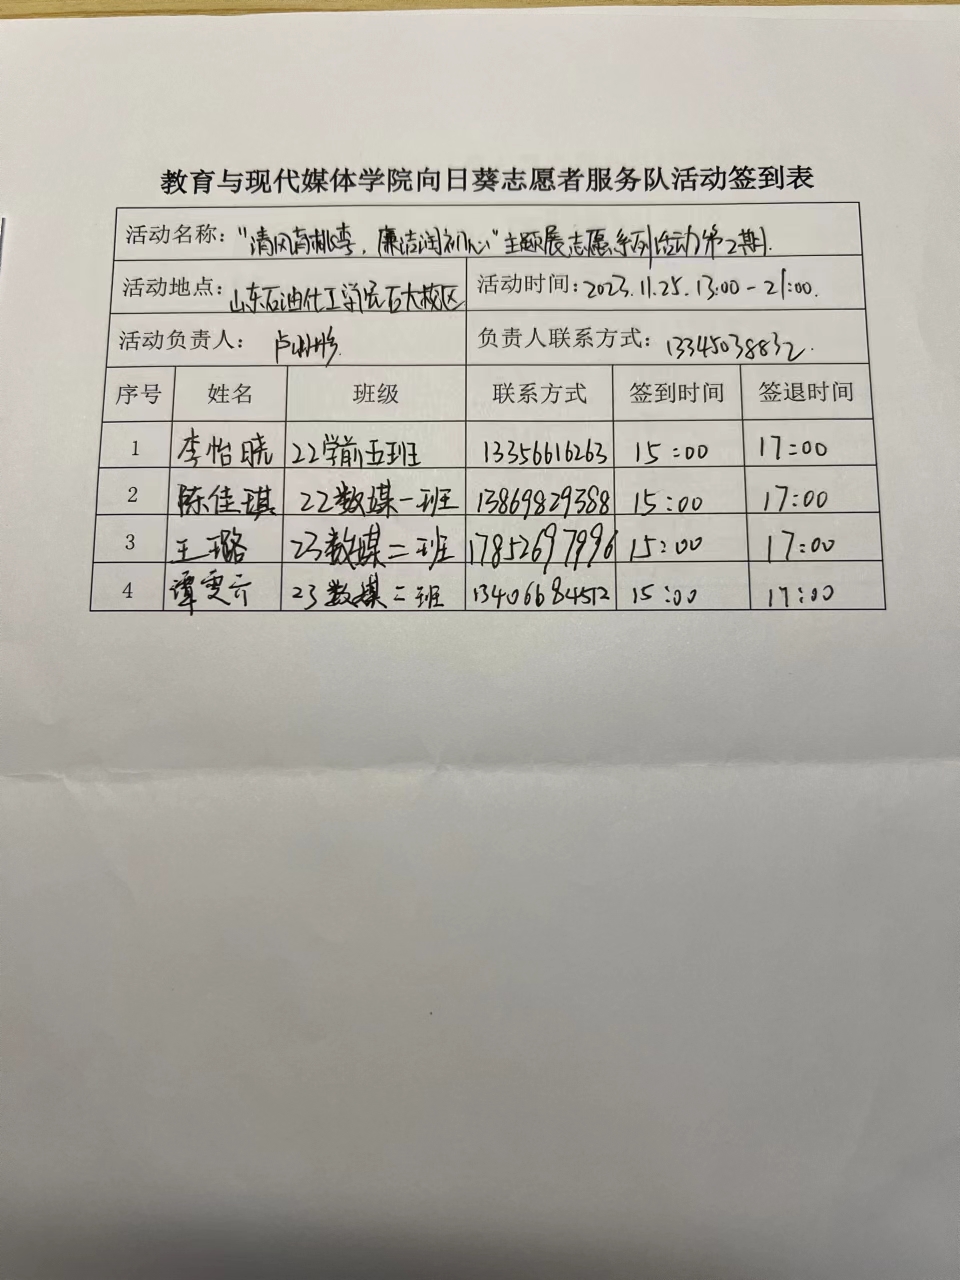 教育与现代媒体学院向日葵志愿者服务队活动签到表
活动名称："清风育桃李，廉洁润初心"主题展志愿系列活动第2期.
活动地点：山东石油化工学院石大校区 活动时间：2023.11.25.13:00-21:00.
活动负责人：卢 负责人联系方式：13345038832.
序号 姓名 班级 联系方式 签到时间 签退时间
1 李怡晓 22学前五班 13356616263 15:00 17:00
2 陈佳琪 22数媒一班 13869829388 15:00 17:00
3 王璐 23数媒二班 17852697996 15:00 17:00
4 谭雯 23数媒二班 13406684512 15:00 17:00